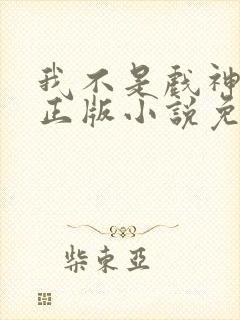 我不是戏神
正版小說免
柴東亞